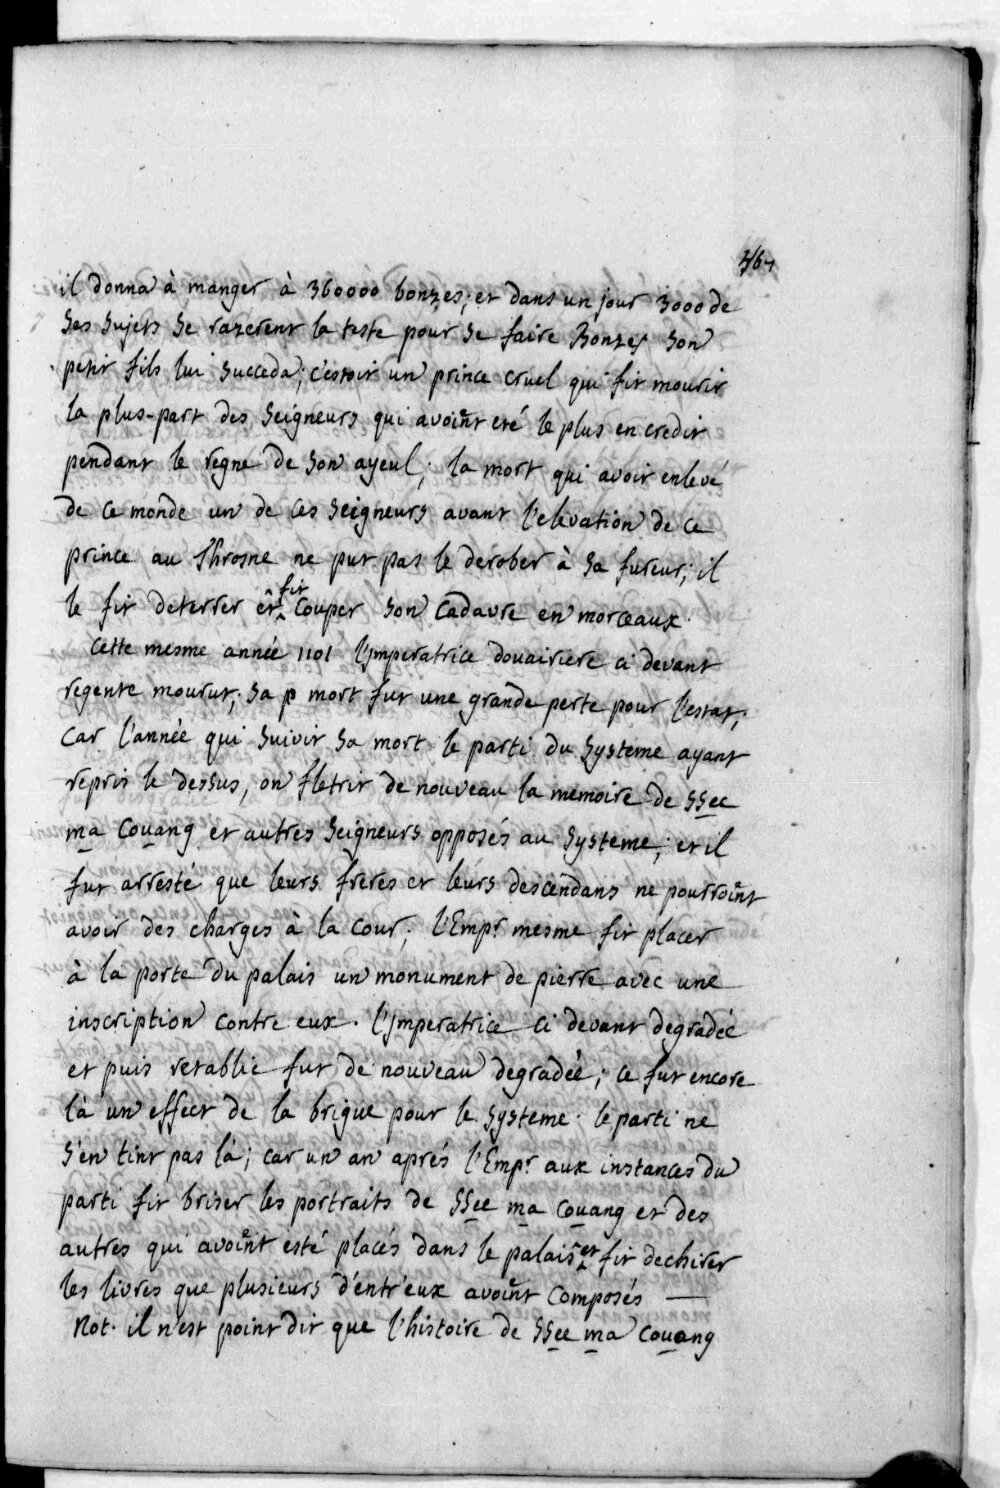 il donna à manger à 360000 bonzes; et dans un jour 3000 de
ses sujets se razerent la teste pour se faire Bonzes son
petit fils lui succeda; c'estoit un prince cruel qui fit mourir
la plus-part des seigneurs qui avoiẽnt eté le plus en credit
pendant le regne de son ayeul; la mort qui avoit enlevé
de ce monde un de ces seigneurs avant l'elevation de ce
prince au Throsne ne put pas le derober à sa fureur; il
le fit deterrer et fit couper son cadavre en morceaux.
Cette mesme année 1101 l'jmperatrice douairiere ci devant
regente mourut; sa p mort fut une grande perte pour l'estat;
car l'année qui suivit sa mort le parti du systeme ayant
repris le dessus, on fletrit de nouveau la memoire de ssee
ma couang et autres seigneurs opposés au systeme; et il
fut arresté que leurs freres et leurs descendans ne pourroiẽnt
avoir des charges à la cour; l'Emp.r mesme fit placer
à la porte du palais un monument de pierre avec une
inscription contre eux. l'jmperatrice ci devant degradée
et puis retablie fut de nouveau degradéé; ce fut encore
là un effect de la brigue pour le systeme. le parti ne
s'en tint pas là; car un an aprés l'Emp.r aux instances du
parti fit briser les portraits de ssee ma couang et des
autres qui avoiẽnt esté placés dans le palais et fit dechirer
les livres que plusieurs d'entr'eux avoiẽnt composés —
Not. il n'est point dit que l'histoire de ssee ma couang